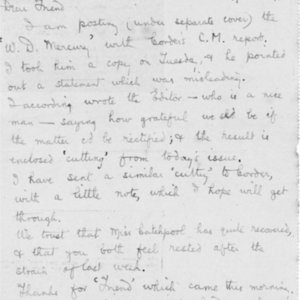 Dear Friend
I am posting (under separate cover) the
'W. D. Mercury' with Corder's C.M. report.
I took him a copy on Tuesday, & he pointed
out a statement which was misleading.
I according wrote the Editor – who is a nice
man – saying how grateful we shd be if
the matter c'd be rectified; & the result is
enclosed 'cutting' from today's issue.
I have sent a similar 'cuttg' to Corder,
with a little note, which I hope will get
through.
We trust that Miss Catchpool has quite recovered,
& that you both feel rested after the
strain of last week.
Thanks for 'Friend' which came this morning.